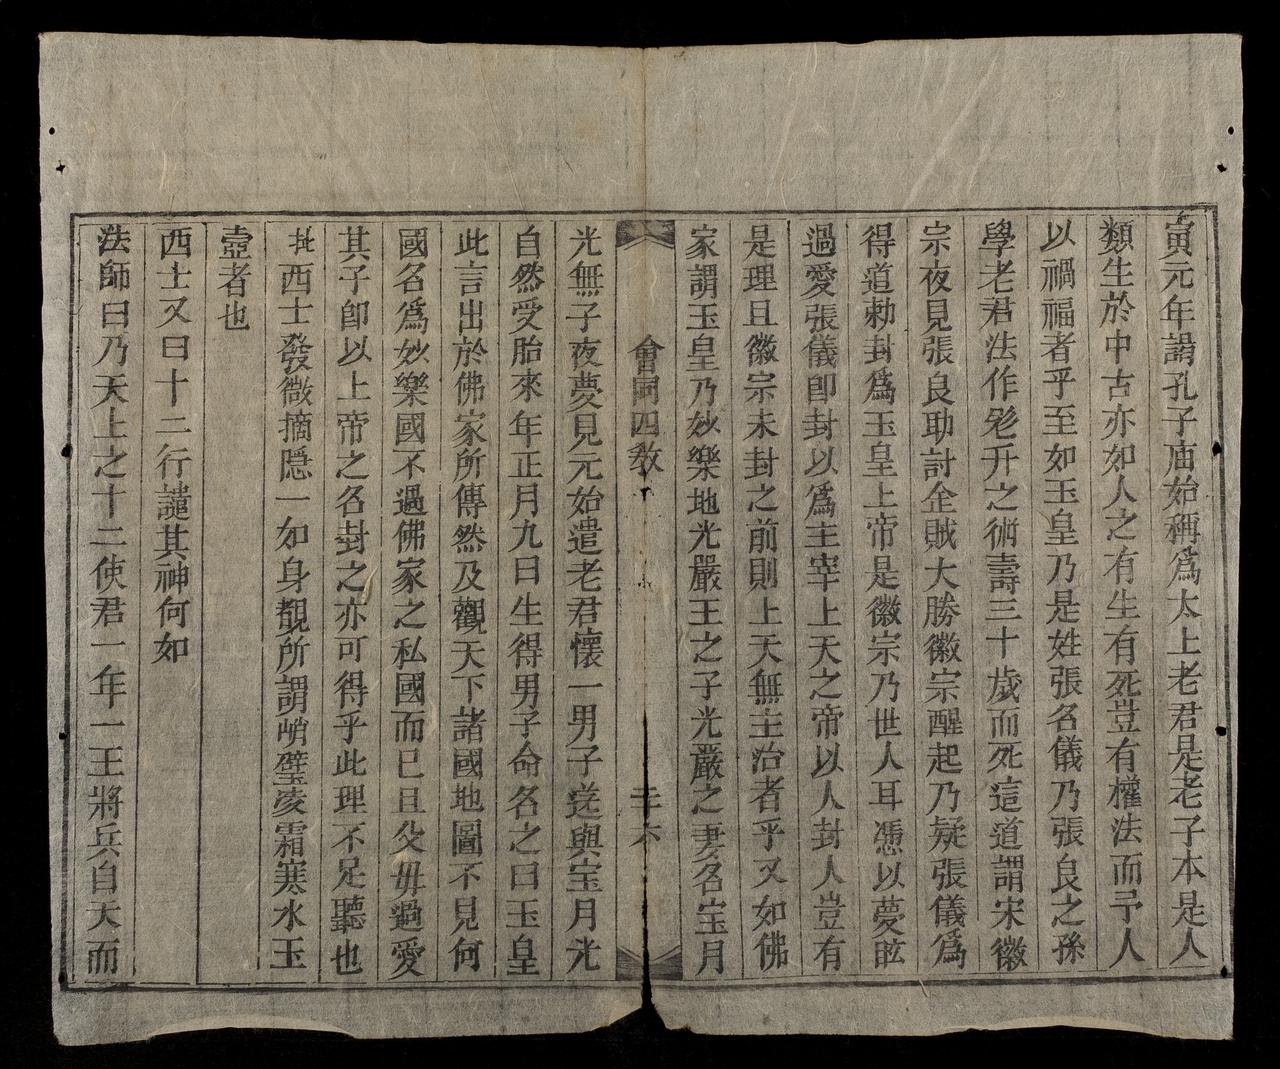 寅元年謁孔子庙始稱爲太上老君是老子本是人
類生於中古亦如人之有生有死豈有權法而予人
以禍福者乎至如玉皇乃是姓張名儀乃張良之孫
學老君法作飛升之術壽三十歲而死這道謂宋徽
宗夜見張良助討企賊大勝徽宗醒起乃疑張儀爲
得道勅封爲玉皇上帝是徽宗乃世人耳憑以夢眩
過愛張儀即封以爲主宰上天之帝以人封人豈有
是理且徽宗未封之前則上天無主治者乎又如佛
家謂玉皇乃妙樂地光嚴王之子光嚴之妻名宝月
會同四教
二十六
光無子夜夢見元始遣老君懷一男子送與宝月光
自然受胎來年正月九日生得男子命名之曰玉皇
此言出於佛家所傳然及觀天下諸國地圖不見何
國名爲妙樂國不過佛家之私國而已且父毋過愛
其子即以上帝之名封之亦可得乎此理不足聽也
批西士發微摘隠一如身覩所謂峭璧凌霜寒水玉
壼者也
西士又曰十二行譴其神何如
法師曰乃天上之十二使君一年一王將兵自天而